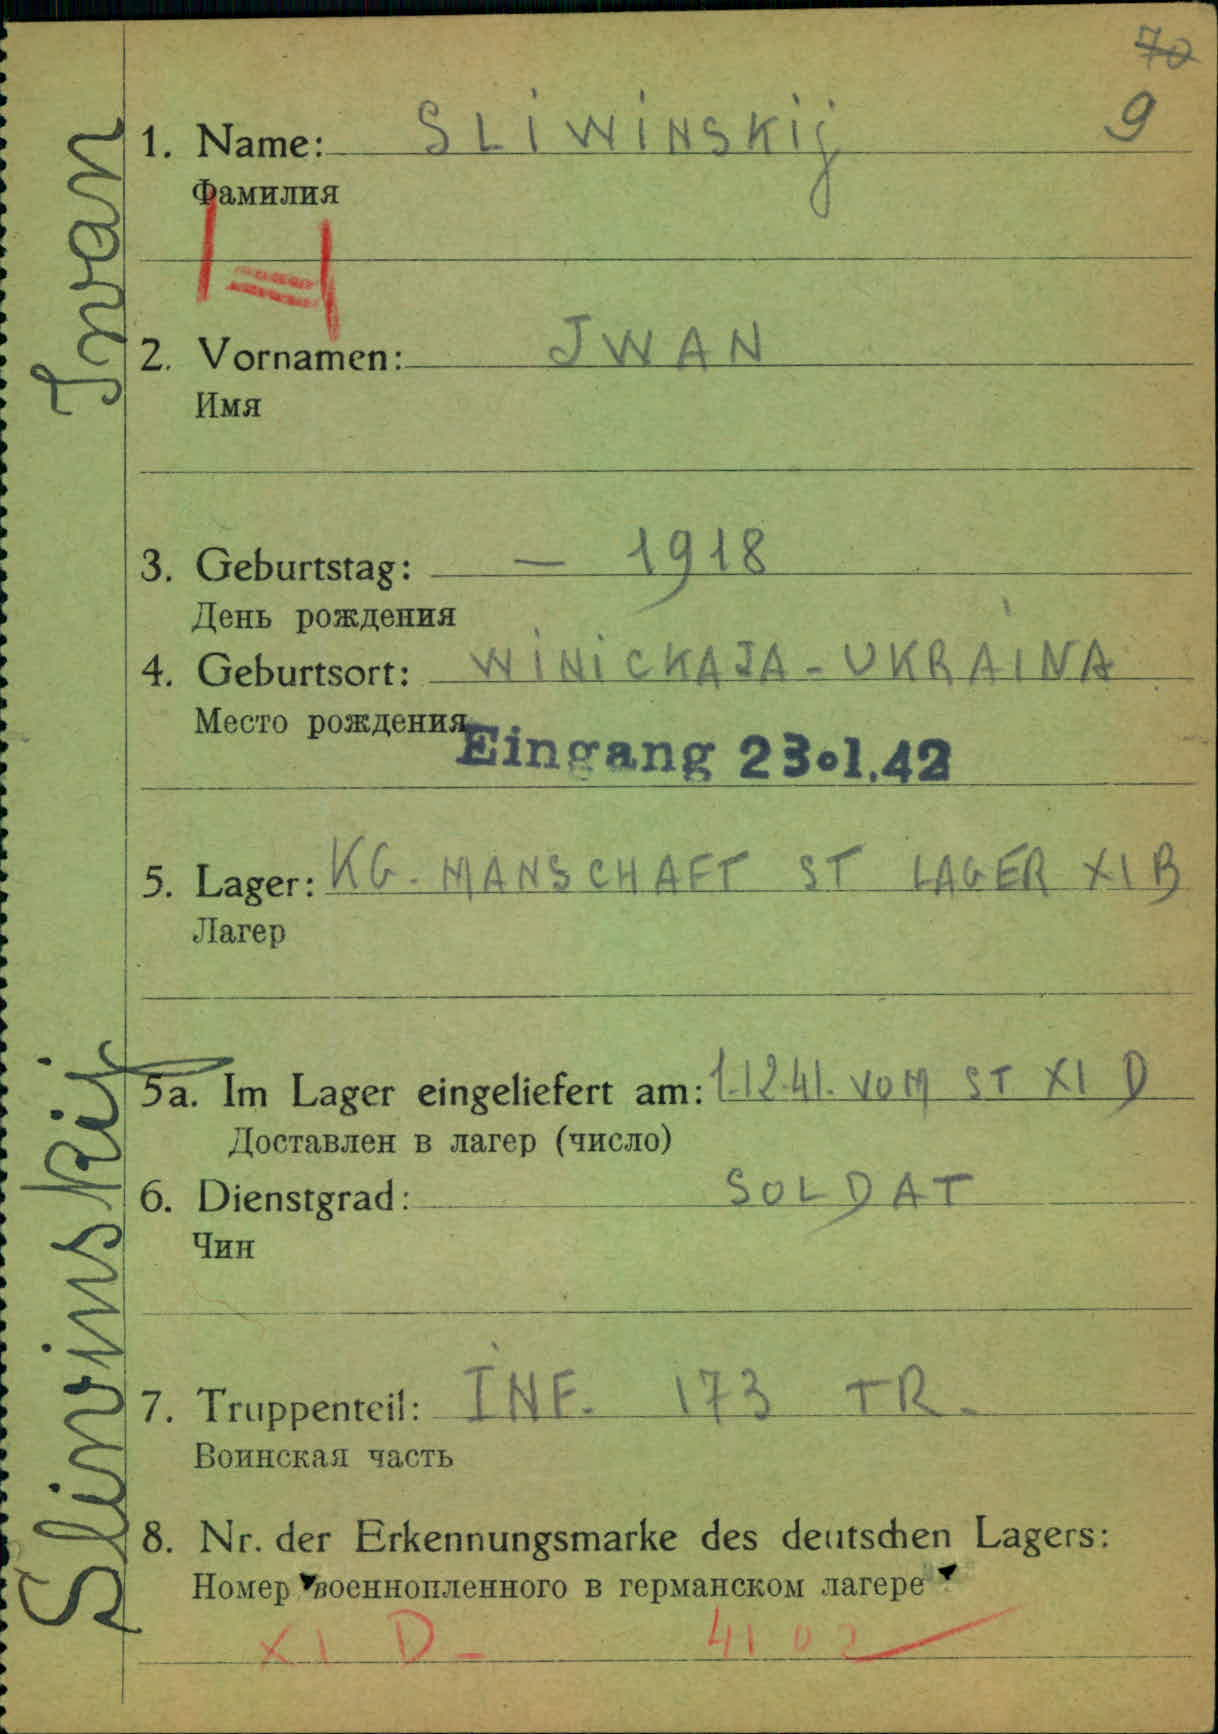 70
9
1. Name: SLIWINSKIJ
Фамилия
2. Vornamen: JWAN
Имя
3. Geburtstag: — 1918
День рождения
4. Geburtsort: WINICKAJA - UKRAINA
Место рождения
Eingang 23.1.42
5. Lager: KG. MANSCHAFT ST LAGER XI B
Лагер
5a. Im Lager eingeliefert am: 1.12.41. VOM ST XI D
Доставлен в лагер (число)
6. Dienstgrad: SOLDAT
Чин
7. Truppenteil: INF. 173 TR.
Воинская часть
8. Nr. der Erkennungsmarke des deutschen Lagers:
Номер военнопленного в германском лагере
XI D - 4102
Slivinskij Ivan